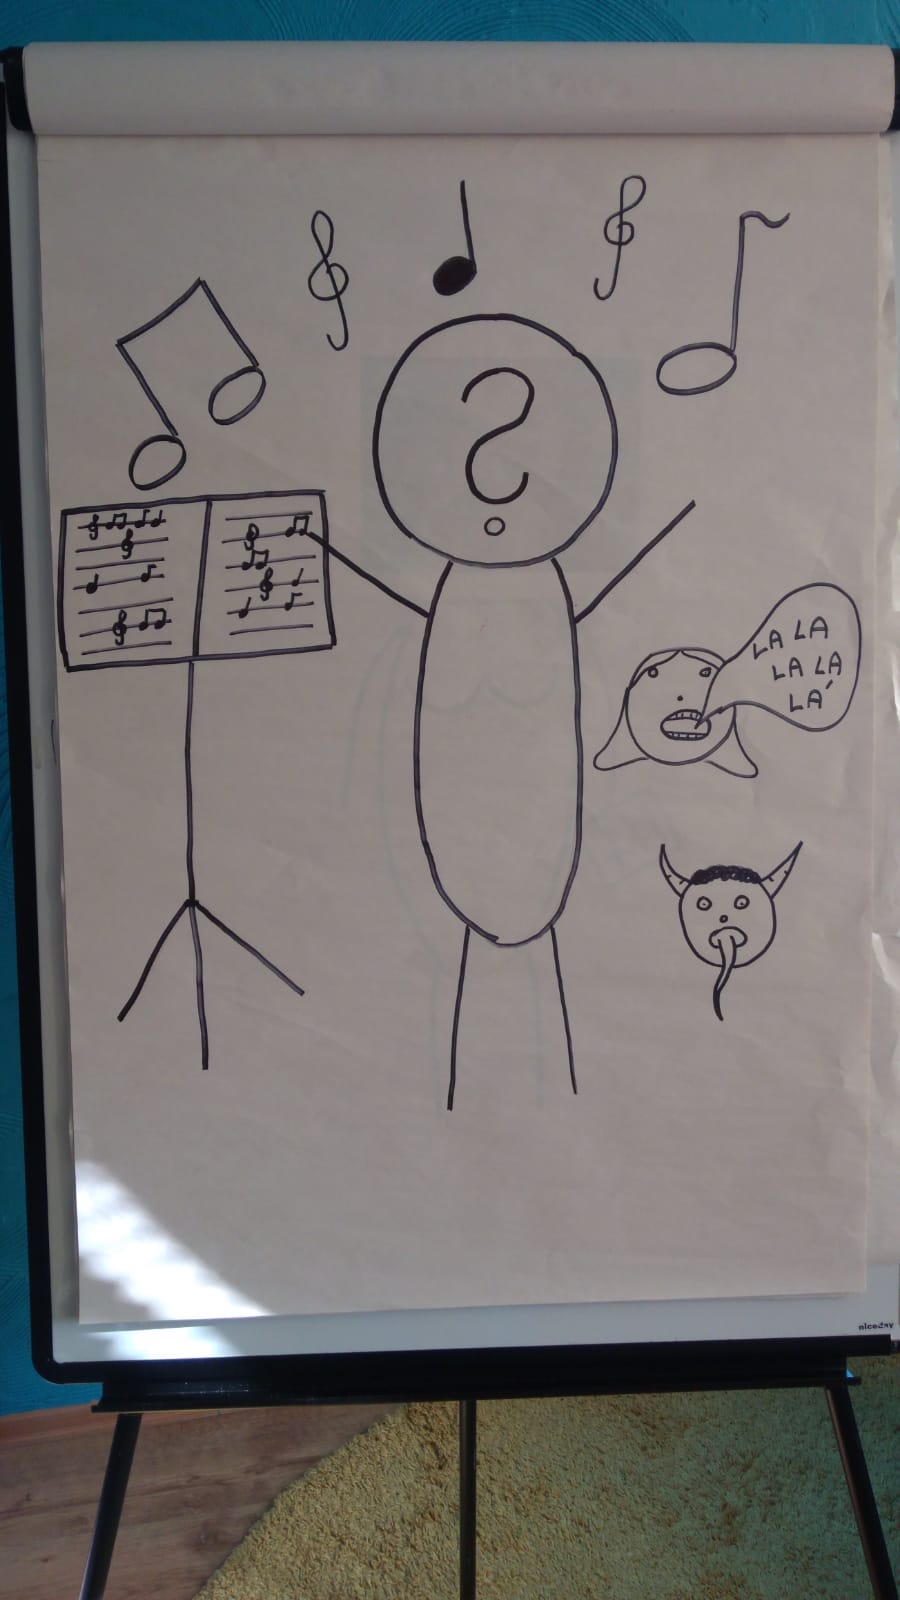 ?
LA LA
LA LA
LA´
niceday